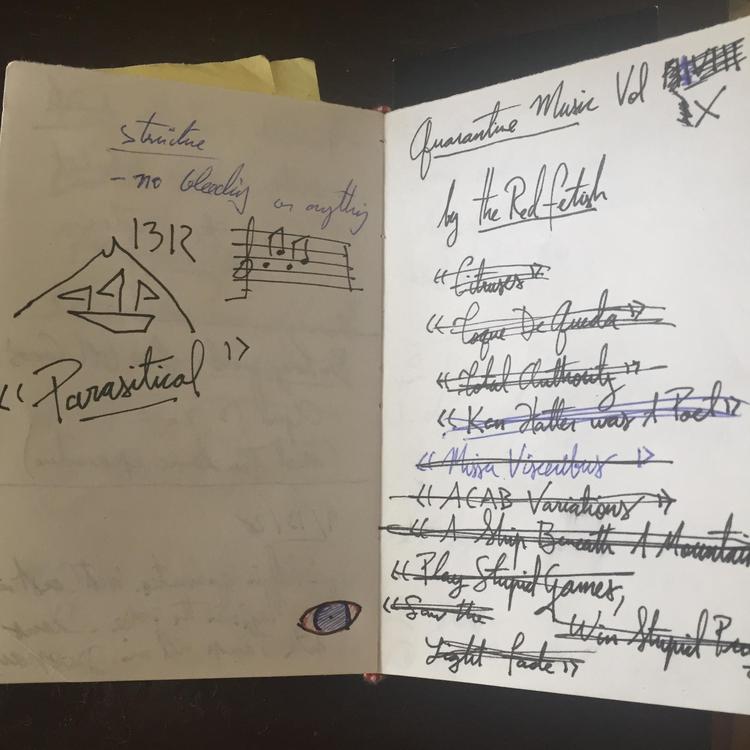 structure
- no bleeding or anything
1312
« Parasitical »
Quarantine Music Vol IX
by the Red Fetish
« Citruses »
« Toque De Queda »
« Total Authority »
« Ken Hatter was A Poet »
« Missa Visceribus »
« ACAB Variations »
« A Ship Beneath A Mountain
« Play Stupid Games,
Win Stupid
« Saw the
Light Fade »